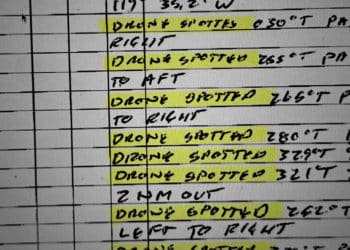 119° 35.2' W
DRONE SPOTTED 030°T PA
RIGHT
DRONE SPOTTED 265°T PA
TO AFT
DRONE SPOTTED 265°T P
TO RIGHT
DRONE SPOTTED 280°T
DRONE SPOTTED 329°T
DRONE SPOTTED 321°T
2 NM OUT
DRONE SPOTTED 262°T
LEFT TO RIGHT
DRONE SPOTTED